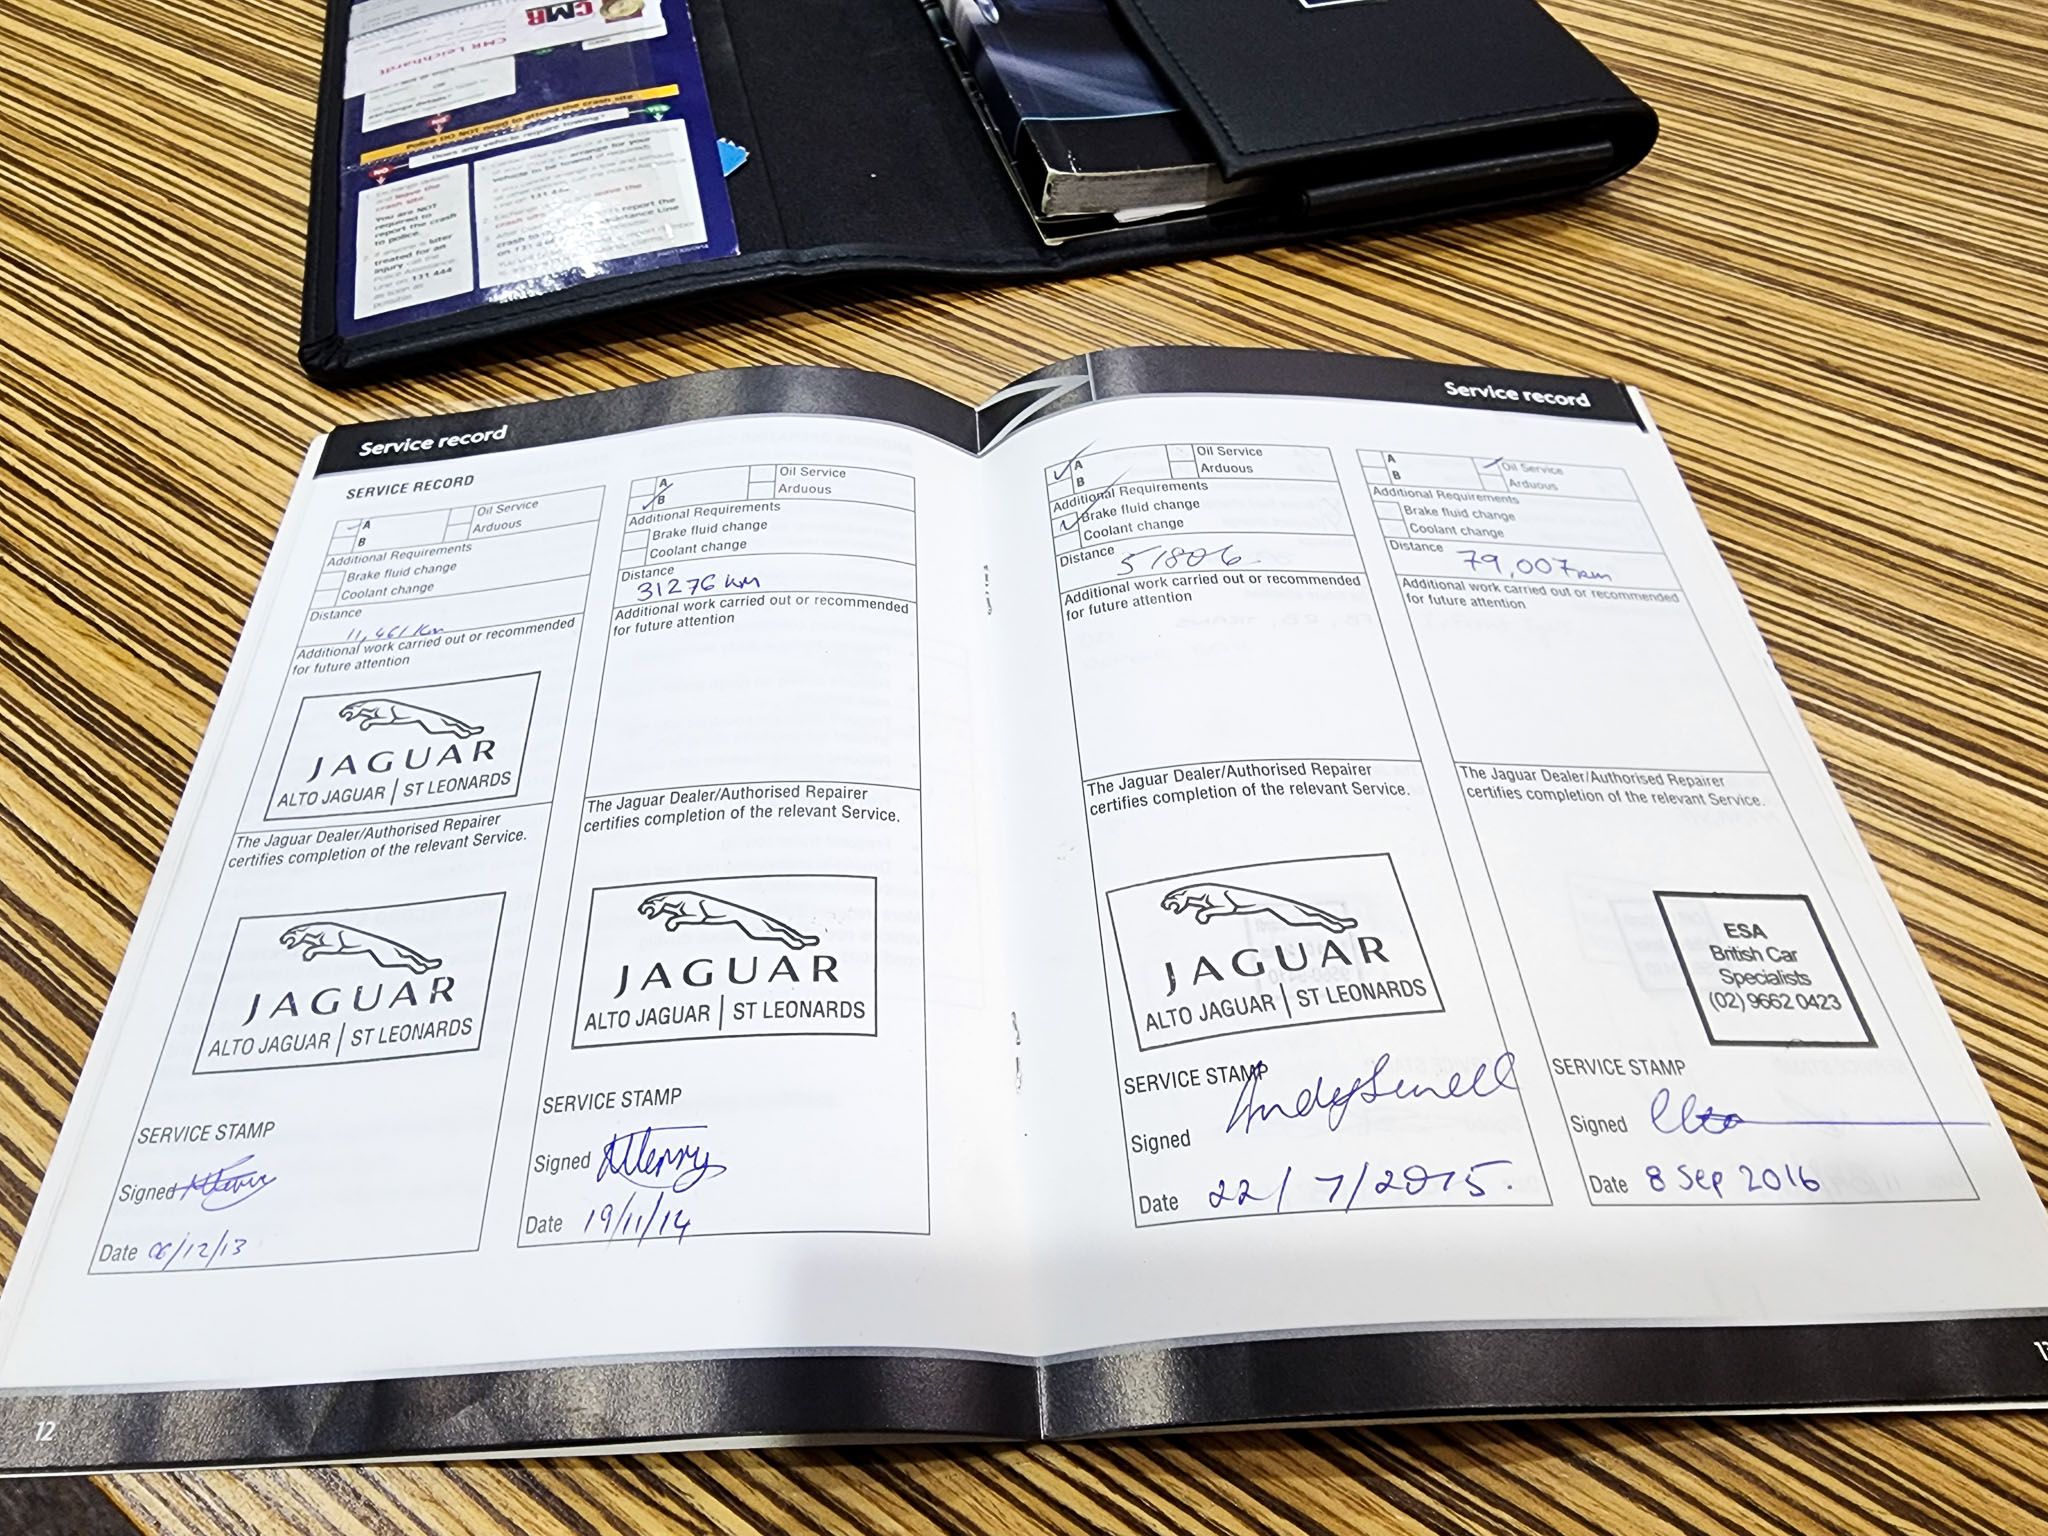 CMR
CMR Leichhardt
exchange details
NO
YES
Police DO NOT need to attend the crash site
Does any vehicle require towing?
NO
and leave the
crash site.
You are NOT
required to
report the crash
to police.
treated for an
injury call the
Police Assistance
Line on 131 444
as soon as
possible.
arrange for your
vehicle to be towed
Service record
SERVICE RECORD
A
B
Oil Service
Arduous
Additional Requirements
Brake fluid change
Coolant change
Distance
11,461 Km
Additional work carried out or recommended
for future attention
JAGUAR
ALTO JAGUAR | ST LEONARDS
The Jaguar Dealer/Authorised Repairer
certifies completion of the relevant Service.
JAGUAR
ALTO JAGUAR | ST LEONARDS
SERVICE STAMP
Signed
Date 06/12/13
A
B
Oil Service
Arduous
Additional Requirements
Brake fluid change
Coolant change
Distance
31276 km
Additional work carried out or recommended
for future attention
The Jaguar Dealer/Authorised Repairer
certifies completion of the relevant Service.
JAGUAR
ALTO JAGUAR | ST LEONARDS
SERVICE STAMP
Signed
Date 19/11/14
12
Service record
A
B
Oil Service
Arduous
Additional Requirements
Brake fluid change
Coolant change
Distance 51806
Additional work carried out or recommended
for future attention
The Jaguar Dealer/Authorised Repairer
certifies completion of the relevant Service.
JAGUAR
ALTO JAGUAR | ST LEONARDS
SERVICE STAMP
Signed
Date 22/7/2015.
A
B
Oil Service
Arduous
Additional Requirements
Brake fluid change
Coolant change
Distance 79,007km
Additional work carried out or recommended
for future attention
The Jaguar Dealer/Authorised Repairer
certifies completion of the relevant Service.
ESA
British Car
Specialists
(02) 9662 0423
SERVICE STAMP
Signed
Date 8 Sep 2016